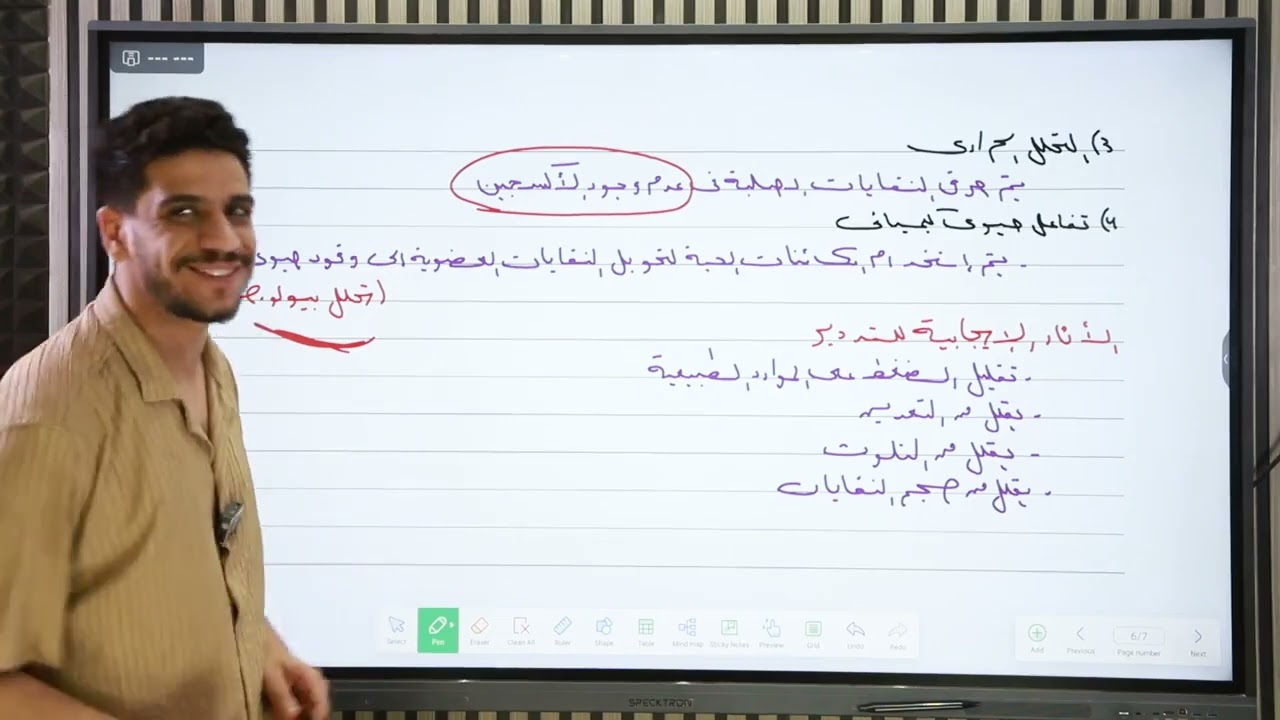 3) التحلل الحراري
يتم حرق النفايات الصلبة في عدم وجود الأكسجين
4) تفاعل حيوي كيميائي
- يتم استخدام الكائنات الحية لتحويل النفايات العضوية الى وقود حيو
(تحلل بيولوج
الأثار الإيجابية للتدوير
- تقليل الضغط على الموارد الطبيعية
- يقلل من التعدين
- يقلل من التلوث
- يقلل من حجم النفايات
Select Pen Eraser Clean All Ruler Shape Table Mind map Sticky Notes Preview Grid Undo Redo Add Previous 6/7 Page number Next
SPECKTRON